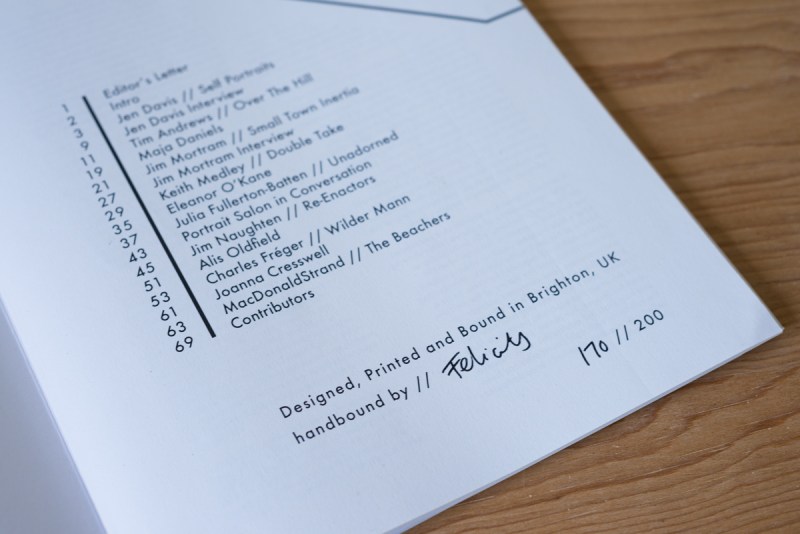 1 Editor's Letter
2 Intro
3 Jen Davis // Self Portraits
9 Jen Davis Interview
11 Tim Andrews // Over The Hill
19 Maja Daniels
21 Jim Mortram // Small Town Inertia
27 Jim Mortram Interview
29 Keith Medley // Double Take
35 Eleanor O'Kane
37 Julia Fullerton-Batten // Unadorned
43 Portrait Salon in Conversation
45 Jim Naughten // Re-Enactors
51 Alis Oldfield
53 Charles Fréger // Wilder Mann
61 Joanna Cresswell
63 MacDonaldStrand // The Beachers
69 Contributors
Designed, Printed and Bound in Brighton, UK
handbound by // Felicity 170 // 200